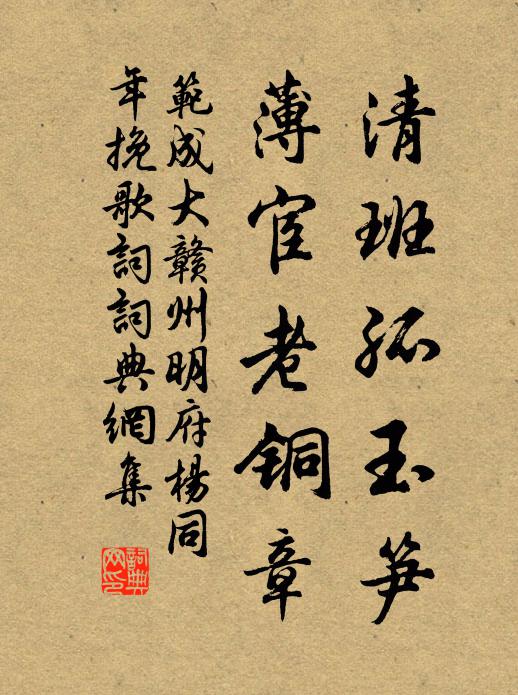 清班孤玉笋
薄宦老铜章
範成大赣州明府楊同
年挽歌詞詞典網集
詞典网印